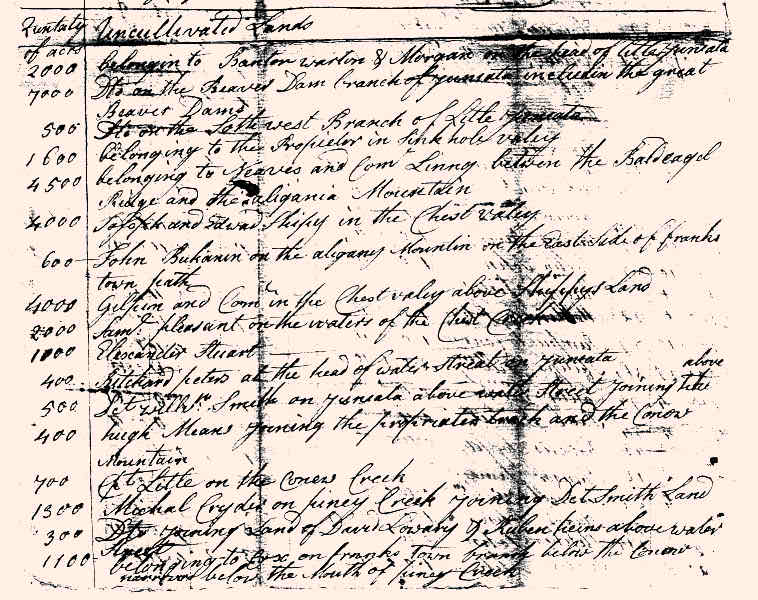 Quntaty of acrs Uncultivated Lands
2000 belongin to Bantor wartin & Morgan on the head of Litle Juneata
7000 Dto on the Beaver Dam branch of Juneata includin the great
Beaver Dams
500 Dto on the Sothwest Branch of Litle Juneata
1600 belonging to the Proprieter in Sink hole valey
4500 belonging to Neaves and Comy Linny betwen the Baldeagel
Ridge and the aligania Mountain
4000 and Shipy in the Chest valey
600 John Buhanin on the aligany Mountin on the East Side of franks
town path
4000 Gilpin and Comy in the Chest valey above Land
2000 Saml pleasant on the waters of the Chest Creek
1000 Elexander Stuart
400 Ritchard peters at the head of water Street on Juneata above
500 Det Smith on Juneata above water Street Joining
400 hugh Means Joining the and the Conow
Mountain
700 Litle on the Conow Creek
1300 Michal Cryder on piney Creek Joining Det Smith Land
300 Dto Joining Land of David Lowary & Ruben above water
Street
1100 belonging to Cox on franks town branch below the Conow
narrows below the Mouth of piney Creek